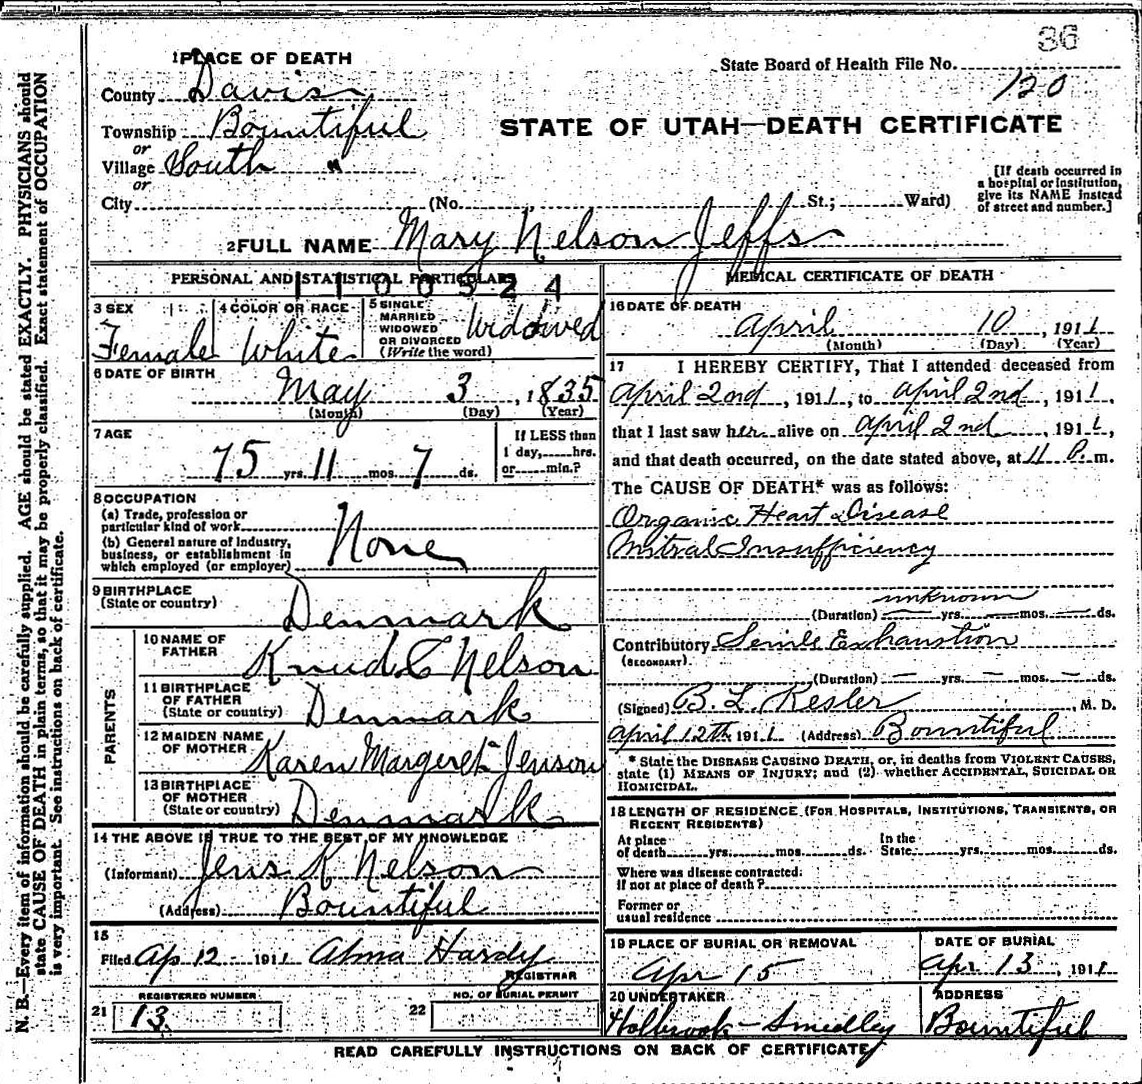 36
1 PLACE OF DEATH
State Board of Health File No.
120
County Davis
Township Bountiful
STATE OF UTAH—DEATH CERTIFICATE
or
Village South "
or
City (No. St.; Ward)
[If death occurred in
a hospital or institution,
give its NAME instead
of street and number.]
2 FULL NAME Mary Nelson Jeffs
PERSONAL AND STATISTICAL PARTICULARS
1100524
3 SEX
Female
4 COLOR OR RACE
White
5 SINGLE
MARRIED
WIDOWED
OR DIVORCED
(Write the word)
Widowed
6 DATE OF BIRTH
May 3, 1835
(Month) (Day) (Year)
7 AGE
75 yrs. 11 mos. 7 ds.
If LESS than
1 day, hrs.
or min.?
8 OCCUPATION
(a) Trade, profession or
particular kind of work
(b) General nature of industry,
business, or establishment in
which employed (or employer)
None
9 BIRTHPLACE
(State or country)
Denmark
PARENTS
10 NAME OF
FATHER
Knud C Nelson
11 BIRTHPLACE
OF FATHER
(State or country)
Denmark
12 MAIDEN NAME
OF MOTHER
Karen Margeret Jenson
13 BIRTHPLACE
OF MOTHER
(State or country)
Denmark
14 THE ABOVE IS TRUE TO THE BEST OF MY KNOWLEDGE
(Informant) Jens K Nelson
(Address) Bountiful
15
Filed Ap 12 - 1911 Alma Hardy
REGISTRAR
REGISTERED NUMBER
21 13
NO. OF BURIAL PERMIT
22
MEDICAL CERTIFICATE OF DEATH
16 DATE OF DEATH
April 10, 1911
(Month) (Day) (Year)
17 I HEREBY CERTIFY, That I attended deceased from
April 2nd, 1911, to April 2nd, 1911,
that I last saw her alive on April 2nd, 1911,
and that death occurred, on the date stated above, at 11 P. m.
The CAUSE OF DEATH* was as follows:
Organic Heart Disease
Mitral Insufficiency
unknown
(Duration) — yrs. — mos. — ds.
Contributory Senile Exhaustion
(SECONDARY)
(Duration) — yrs. — mos. — ds.
(Signed) B. L. Kesler, M. D.
April 12th 1911 (Address) Bountiful
* State the DISEASE CAUSING DEATH, or, in deaths from VIOLENT CAUSES,
state (1) MEANS OF INJURY; and (2) whether ACCIDENTAL, SUICIDAL OR
HOMICIDAL.
18 LENGTH OF RESIDENCE (FOR HOSPITALS, INSTITUTIONS, TRANSIENTS, OR
RECENT RESIDENTS)
At place
of death yrs. mos. ds.
In the
State yrs. mos. ds.
Where was disease contracted,
if not at place of death?
Former or
usual residence
19 PLACE OF BURIAL OR REMOVAL
Apr 15
DATE OF BURIAL
Apr 13, 1911
20 UNDERTAKER
Holbrook - Smedley
ADDRESS
Bountiful
READ CAREFULLY INSTRUCTIONS ON BACK OF CERTIFICATE
N. B.—Every item of information should be carefully supplied. AGE should be stated EXACTLY. PHYSICIANS should
state CAUSE OF DEATH in plain terms, so that it may be properly classified. Exact statement of OCCUPATION
is very important. See instructions on back of certificate.